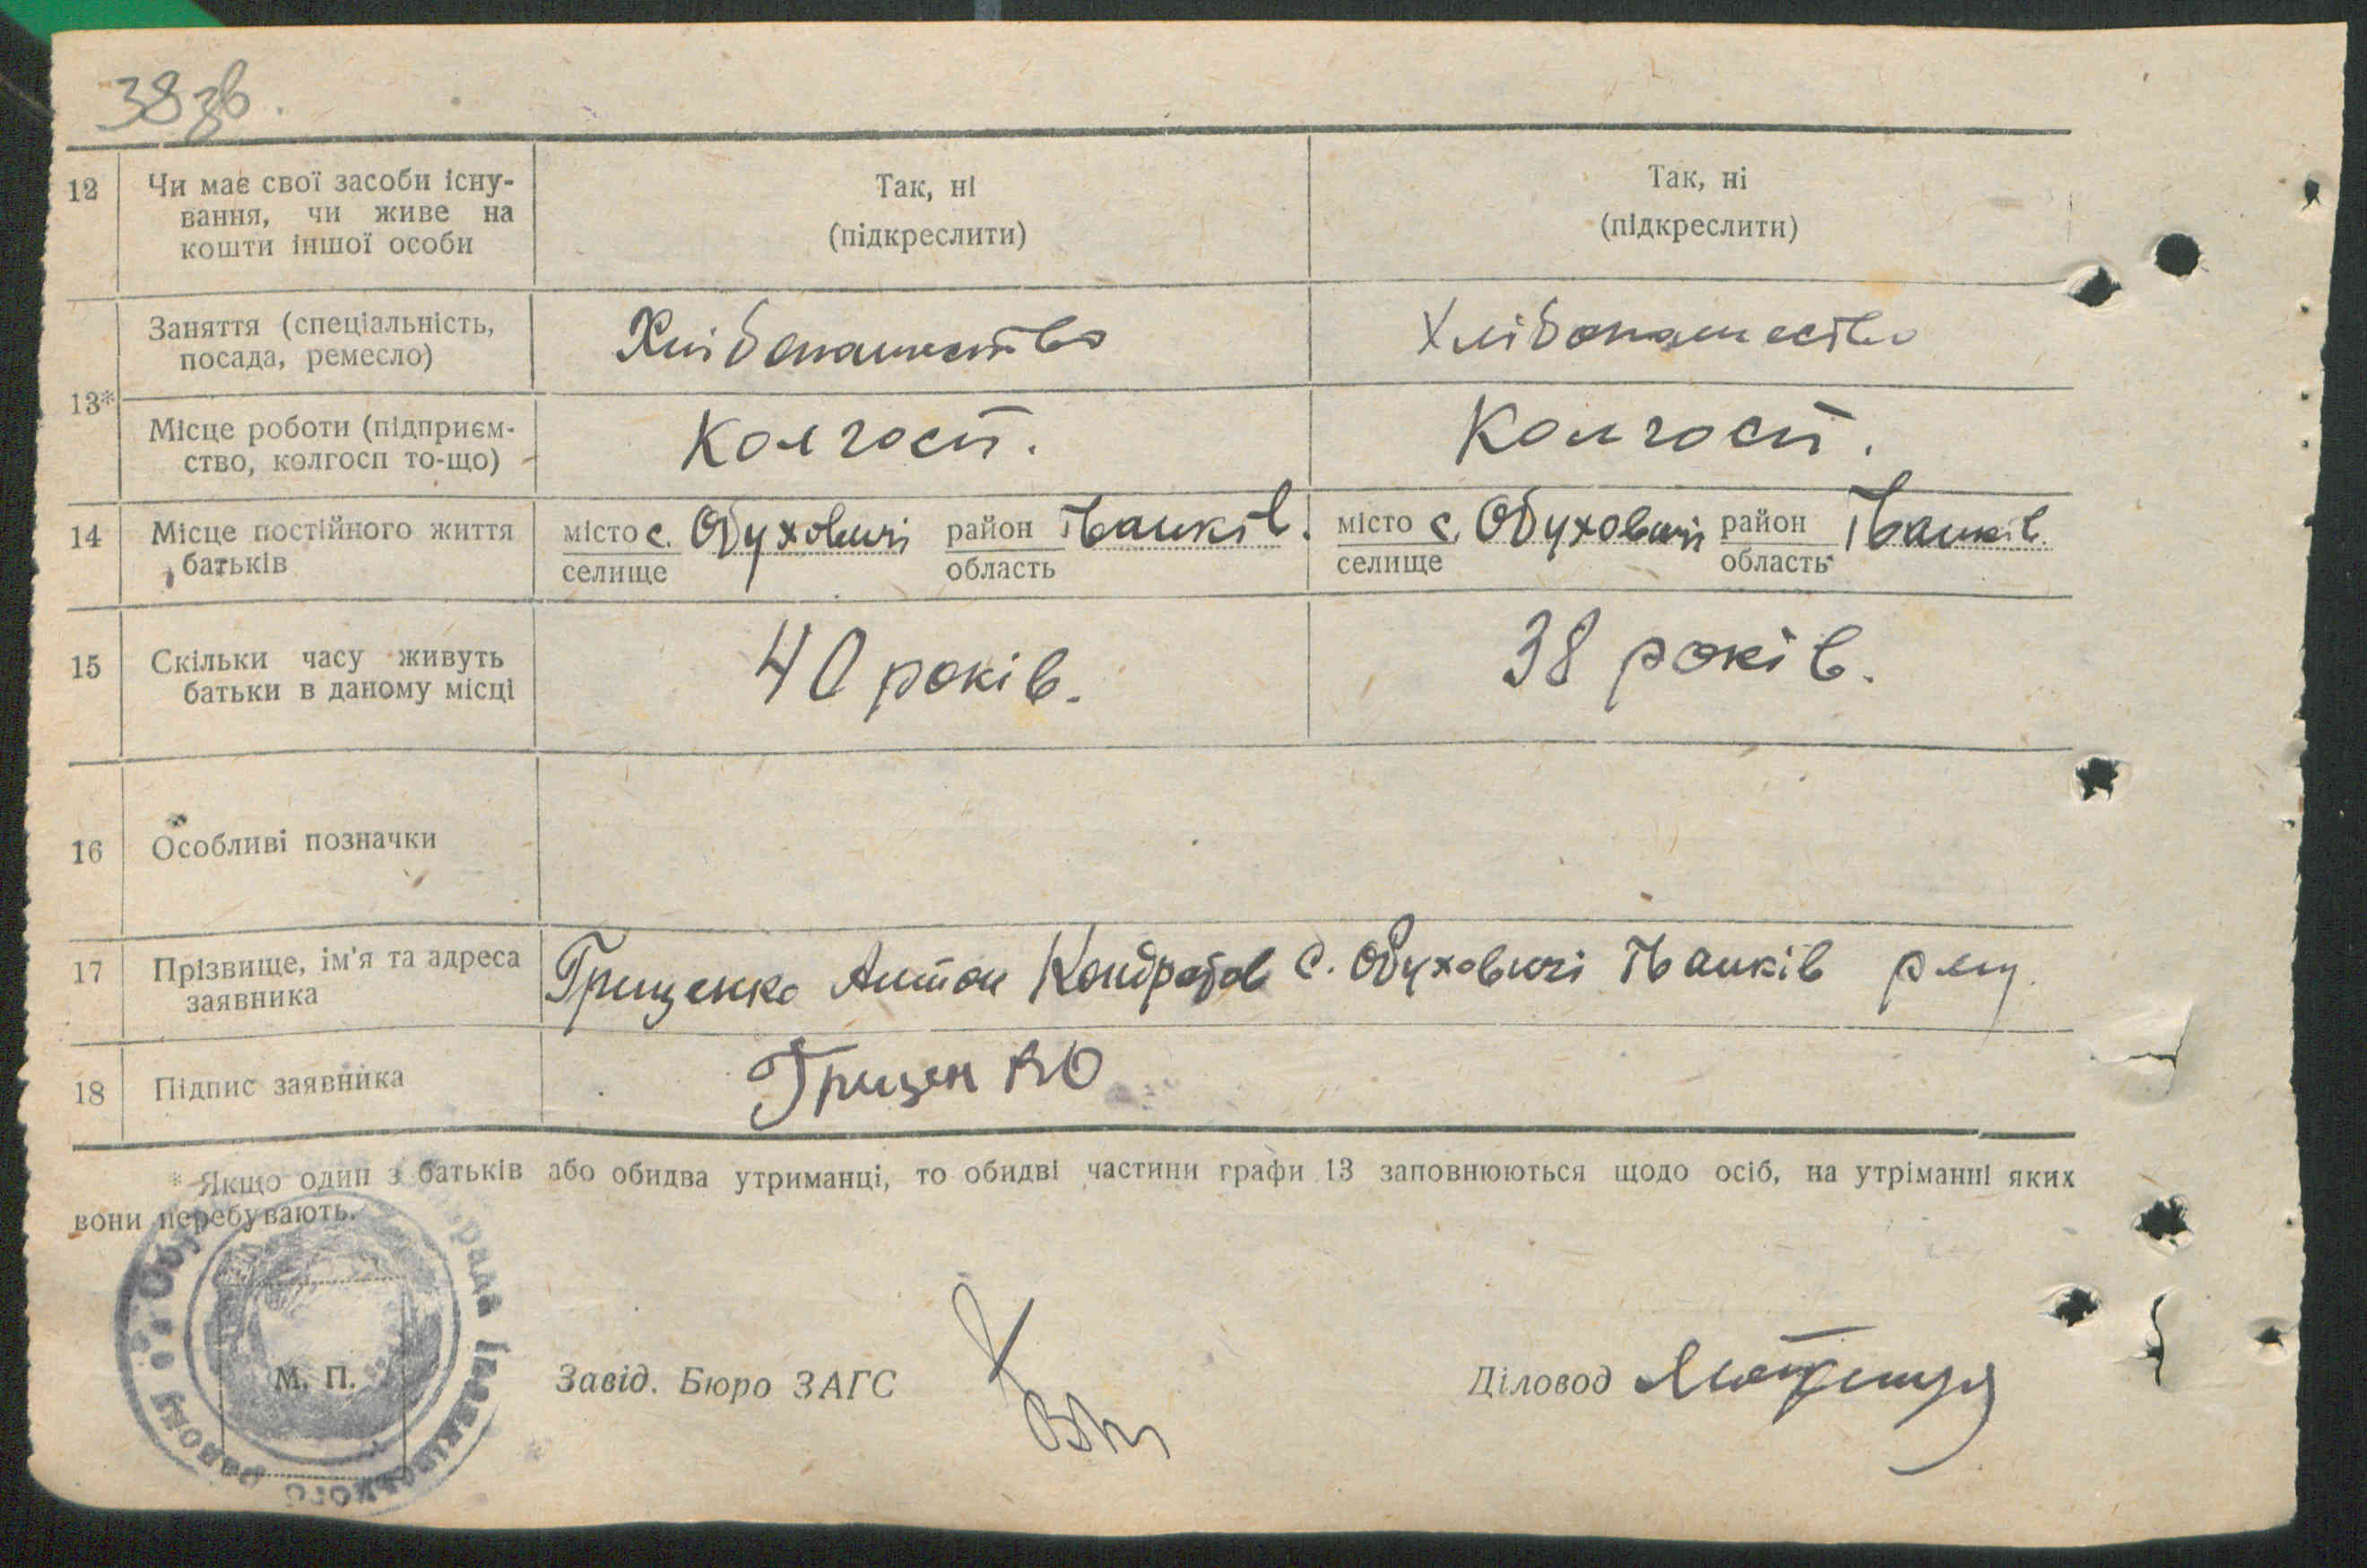 38 зв.
12 Чи має свої засоби існу- Так, ні Так, ні
вання, чи живе на (підкреслити) (підкреслити)
кошти іншої особи
13* Заняття (спеціальність, Хлібопашество Хлібопашество
посада, ремесло)
Місце роботи (підприєм- Колгосп. Колгосп.
ство, колгосп то-що)
14 Місце постійного життя місто с. Обуховичі район Іванків. місто с. Обуховичі район Іванків.
батьків селище область селище область
15 Скільки часу живуть 40 років. 38 років.
батьки в даному місці
16 Особливі позначки
17 Прізвище, ім'я та адреса Грищенко Антон Кондратов с. Обуховичі Іванків
заявника
18 Підпис заявника Грищенко
* Якщо один з батьків або обидва утриманці, то обидві частини графи 13 заповнюються щодо осіб, на утріманні яких
вони перебувають.
М. П.
Завід. Бюро ЗАГС Діловод